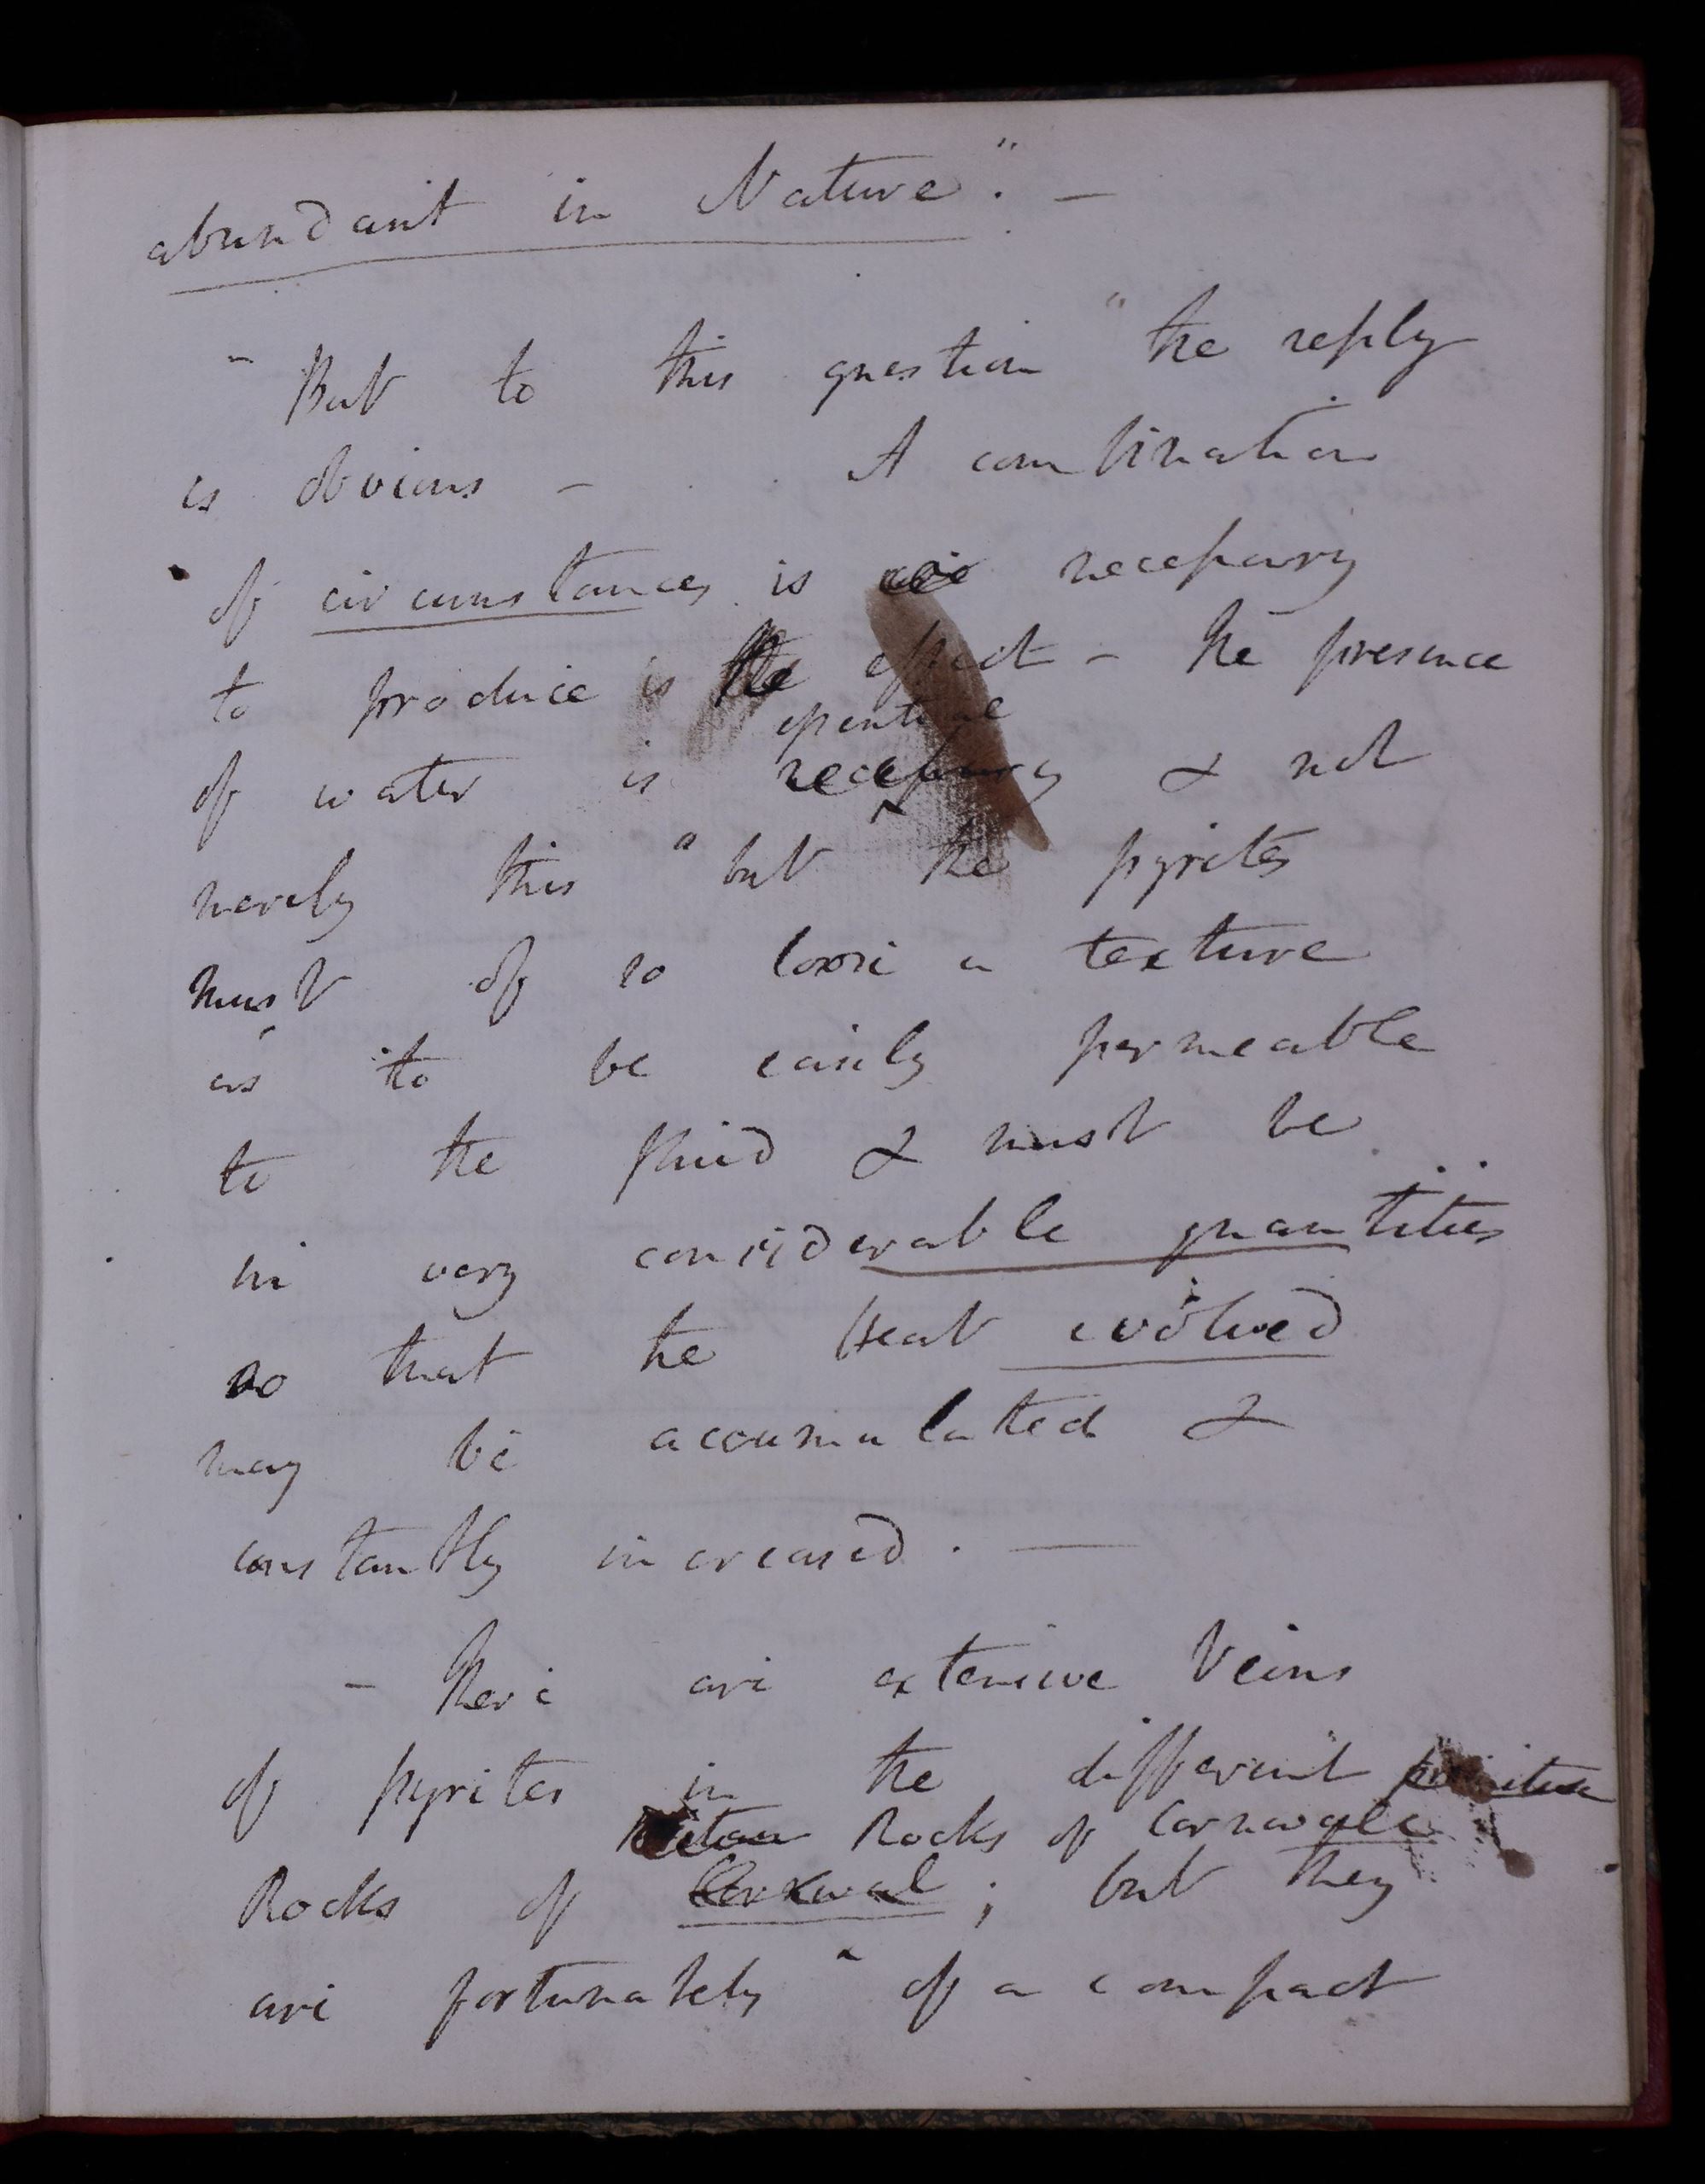 abundant in Nature". —
- But to this question "the reply
is obvious - A combination
of circumstances is necessary
to produce is the effect - the presence
essential
of water is necessary & not
merely this "but the pyrites
must of so loose a texture
as to be easily permeable
to the fluid & must be
in very considerable quantities
so that the Heat evolved
may be accumulated &
constantly increased. —
- There are extensive Veins
of pyrites in the different
Rocks of Cornwall
Rocks of Cornwal; but they
are fortunately "of a compact